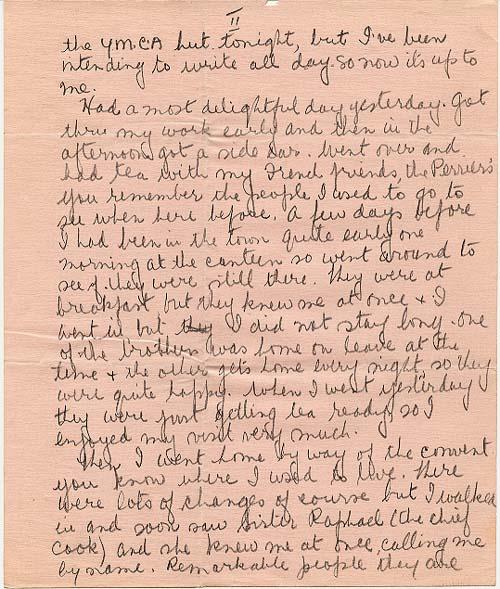 II
the Y.M.C.A hut tonight, but I've been
intending to write all day. So now its up to
me.
Had a most delightful day yesterday. Got
thru my work early and then in the
afternoon got a side car. Went over and
had tea with my French friends, the Perrier's
you remember the people I used to go to
see when here before. A few days before
I had been in the town quite early one
morning at the canteen so went around to
see if they were still there. They were at
breakfast but they knew me at once & I
went in but they I did not stay long. one
of the brothers was home on leave at the
time & the other gets home every night, so they
were quite happy. When I went yesterday
they were just getting tea ready, so I
enjoyed my visit very much.
Then I went home by way of the convent
you know where I used to live. There
were lots of changes of course but I walked
in and soon saw Sister Raphael (the chief
cook) and she knew me at once, calling me
by name. Remarkable people they are